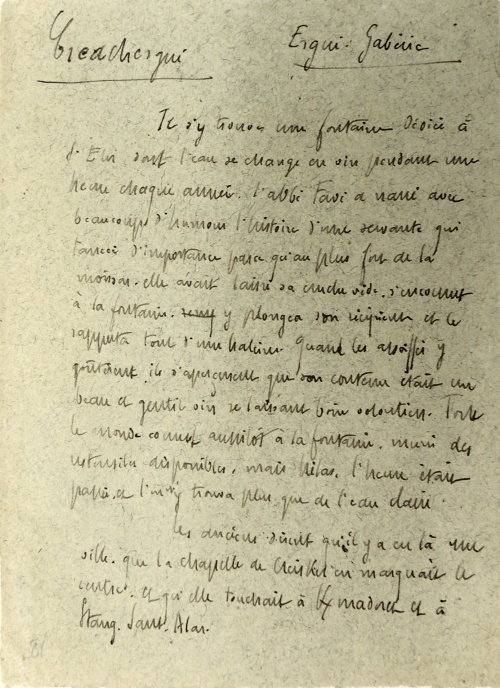 Creachergui
Ergué-Gabéric
Il s'y trouve une fontaine dédiée à
St Eloi, dont l'eau se change en vin pendant une
heure chaque année. L'abbé Favé a narré avec
beaucoup d'humour l'histoire d'une servante qui
tancée d'importance parce qu'au plus fort de la
moisson, elle avait laissé sa cruche vide, s'encourut
à la fontaine. y plongea son récipient et le
rapporta tout d'une haleine. Quand les assoiffés y
goûtèrent, ils s'aperçurent que son contenu était un
beau et gentil vin se laissant boire volontiers. Tout
le monde courut aussitôt à la fontaine, muni des
ustensiles disponibles, mais hélas, l'heure était
passée et l'on n'y trouva plus que de l'eau claire.
Les anciens disent qu'il y a eu là une
ville, que la chapelle de en marquait le
centre, et qu'elle touchait à et à
Stang. Sant. Alar.